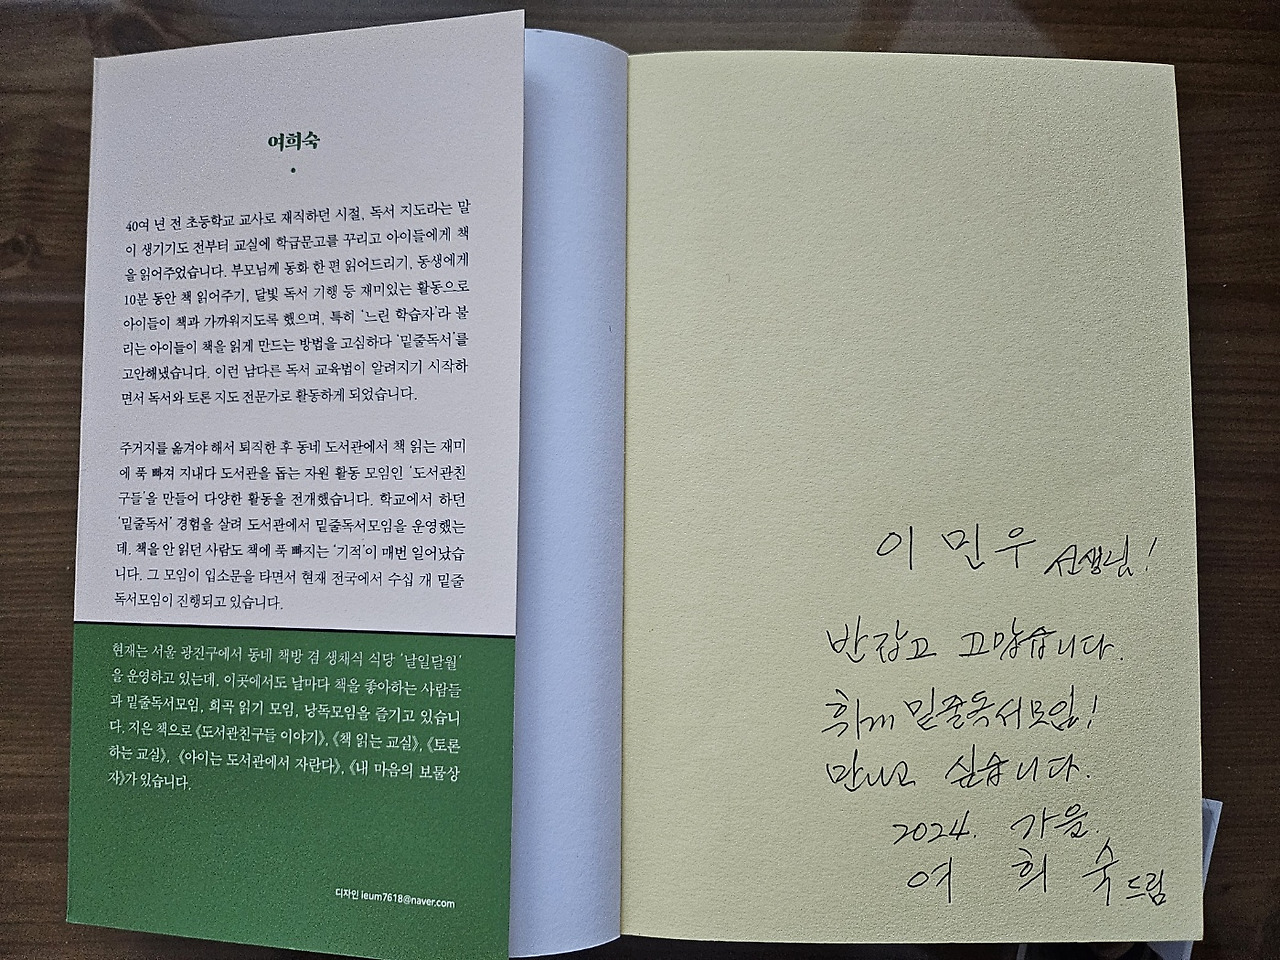 여희숙
40여 년 전 초등학교 교사로 재직하던 시절, 독서 지도라는 말
이 생기기도 전부터 교실에 학급문고를 꾸리고 아이들에게 책
을 읽어주었습니다. 부모님께 동화 한 편 읽어드리기, 동생에게
10분 동안 책 읽어주기, 달빛 독서 기행 등 재미있는 활동으로
아이들이 책과 가까워지도록 했으며, 특히 '느린 학습자'라 불
리는 아이들이 책을 읽게 만드는 방법을 고심하다 '밑줄독서'를
고안해냈습니다. 이런 남다른 독서 교육법이 알려지기 시작하
면서 독서와 토론 지도 전문가로 활동하게 되었습니다.
주거지를 옮겨야 해서 퇴직한 후 동네 도서관에서 책 읽는 재미
에 푹 빠져 지내다 도서관을 돕는 자원 활동 모임인 '도서관친
구들'을 만들어 다양한 활동을 전개했습니다. 학교에서 하던
'밑줄독서' 경험을 살려 도서관에서 밑줄독서모임을 운영했는
데, 책을 안 읽던 사람도 책에 푹 빠지는 '기적'이 매번 일어났습
니다. 그 모임이 입소문을 타면서 현재 전국에서 수십 개 밑줄
독서모임이 진행되고 있습니다.
현재는 서울 광진구에서 동네 책방 겸 생채식 식당 '날일달월'
을 운영하고 있는데, 이곳에서도 날마다 책을 좋아하는 사람들
과 밑줄독서모임, 희곡 읽기 모임, 낭독모임을 즐기고 있습니
다. 지은 책으로 《도서관친구들 이야기》, 《책 읽는 교실》, 《토론
하는 교실》, 《아이는 도서관에서 자란다》, 《내 마음의 보물상
자》가 있습니다.
디자인 ieum7618@naver.com
이 민우 선생님!
반갑고 고맙습니다.
함께 밑줄독서모임!
만나고 싶습니다.
2024. 가을.
여 희 숙 드림